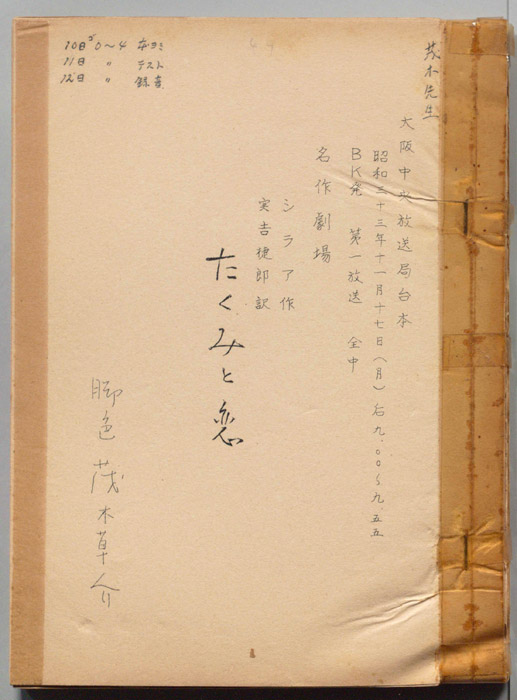 茂木先生
大阪中央放送局台本
昭和三十三年十一月十七日(月)右九.〇〇~九.五五
BK発 第一放送 全中
名作劇場
シラア作
実吉捷郎訳
たくみと恋
脚色 茂木草介
10日ゴ0~4 本ヨミ
11日 〃 テスト
12日 〃 録音